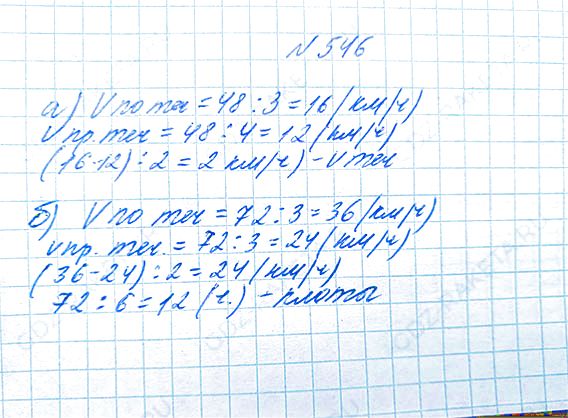 N 546
а) V по теч = 48 : 3 = 16 (км/ч)
V пр. теч = 48 : 4 = 12 (км/ч)
(16-12) : 2 = 2 км/ч) - V теч
б) V по теч = 72 : 3 = 36 (км/ч)
V пр. теч. = 72 : 3 = 24 (км/ч)
(36-24) : 2 = 24 (км/ч)
72 : 6 = 12 (ч.) - плоты